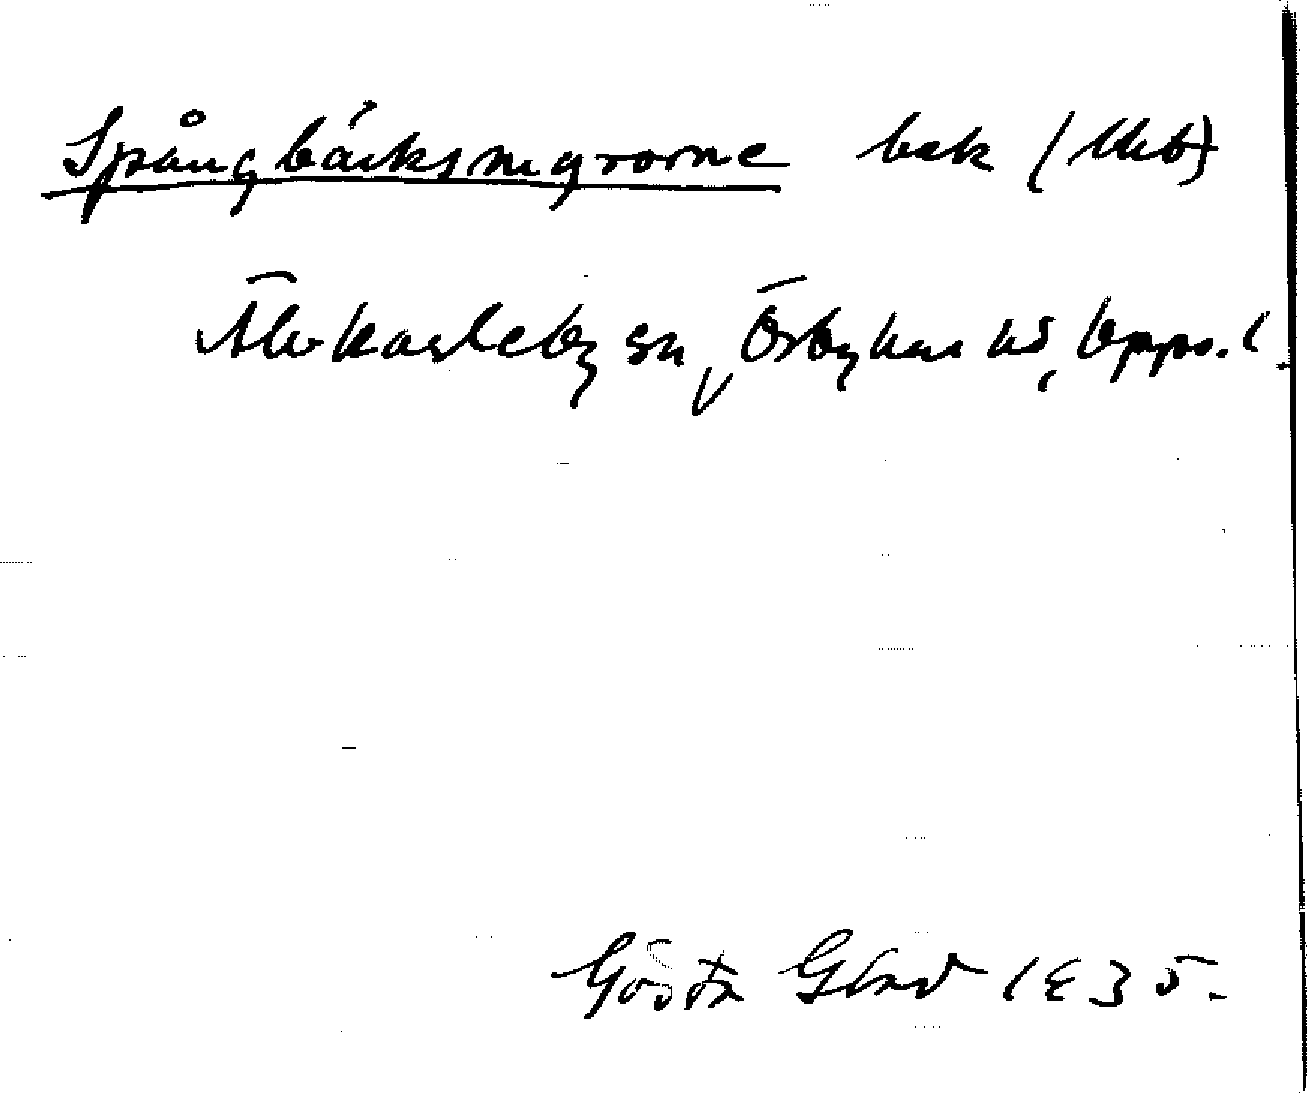 Spångbäcksmyrorne bek (Ukb)
Älvkarleby sn, Örbyhus hd, Upps. l.
Gösta Glad 1935.